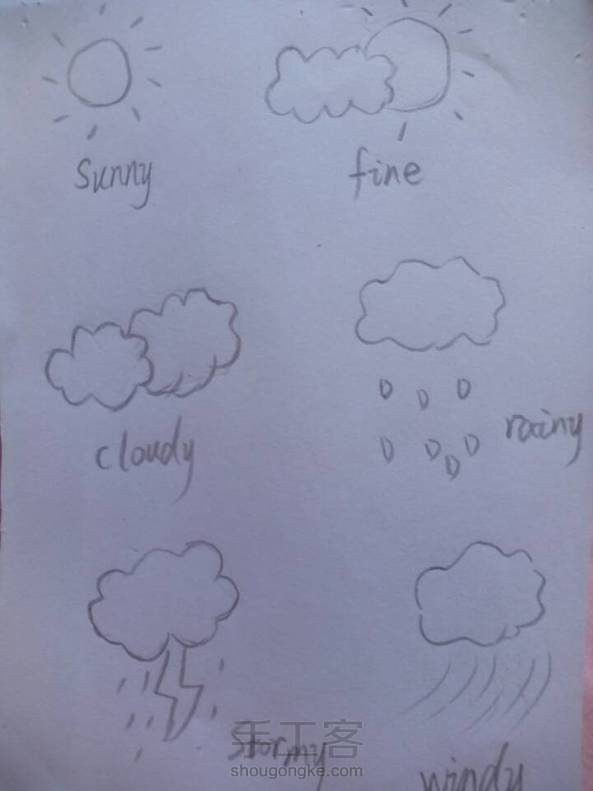 sunny
fine
cloudy
rainy
stormy
手工客
shougongke.com
windy